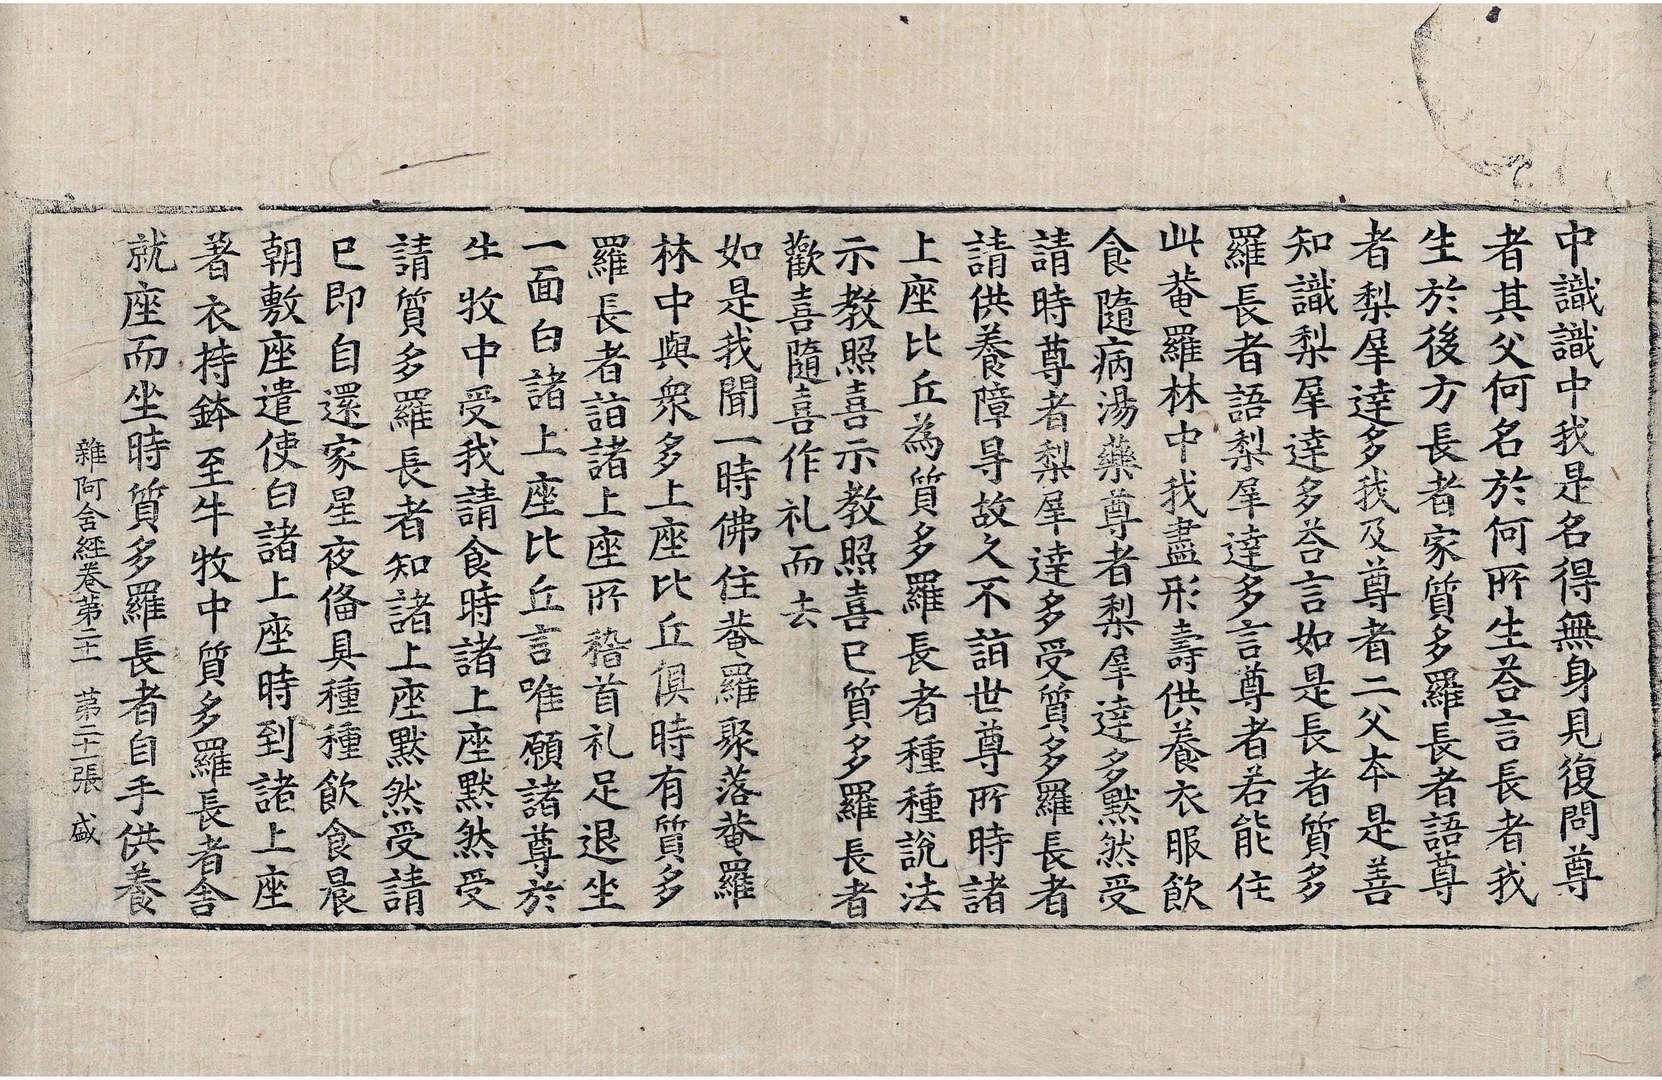 中識識中我是名得無身見復問尊
者其父何名於何所生荅言長者我
生於後方長者家質多羅長者語尊
者梨犀達多我及尊者二父本是善
知識梨犀達多荅言如是長者質多
羅長者語梨犀達多言尊者若能住
此菴羅林中我盡形壽供養衣服飲
食隨病湯藥尊者梨犀達多黙然受
請時尊者梨犀達多受質多羅長者
請供養障㝵故久不詣世尊所時諸
上座比丘為質多羅長者種種說法
示教照喜示教照喜已質多羅長者
歡喜隨喜作礼而去
如是我聞一時佛住菴羅聚落菴羅
林中與衆多上座比丘俱時有質多
羅長者詣諸上座所稽首礼足退坐
一面白諸上座比丘言唯願諸尊於
牛牧中受我請食時諸上座黙然受
請質多羅長者知諸上座黙然受請
已即自還家星夜俻具種種飲食晨
朝敷座遣使白諸上座時到諸上座
著衣持鉢至牛牧中質多羅長者舍
就座而坐時質多羅長者自手供養
雜阿含經卷第二十一 第二十一張 盛